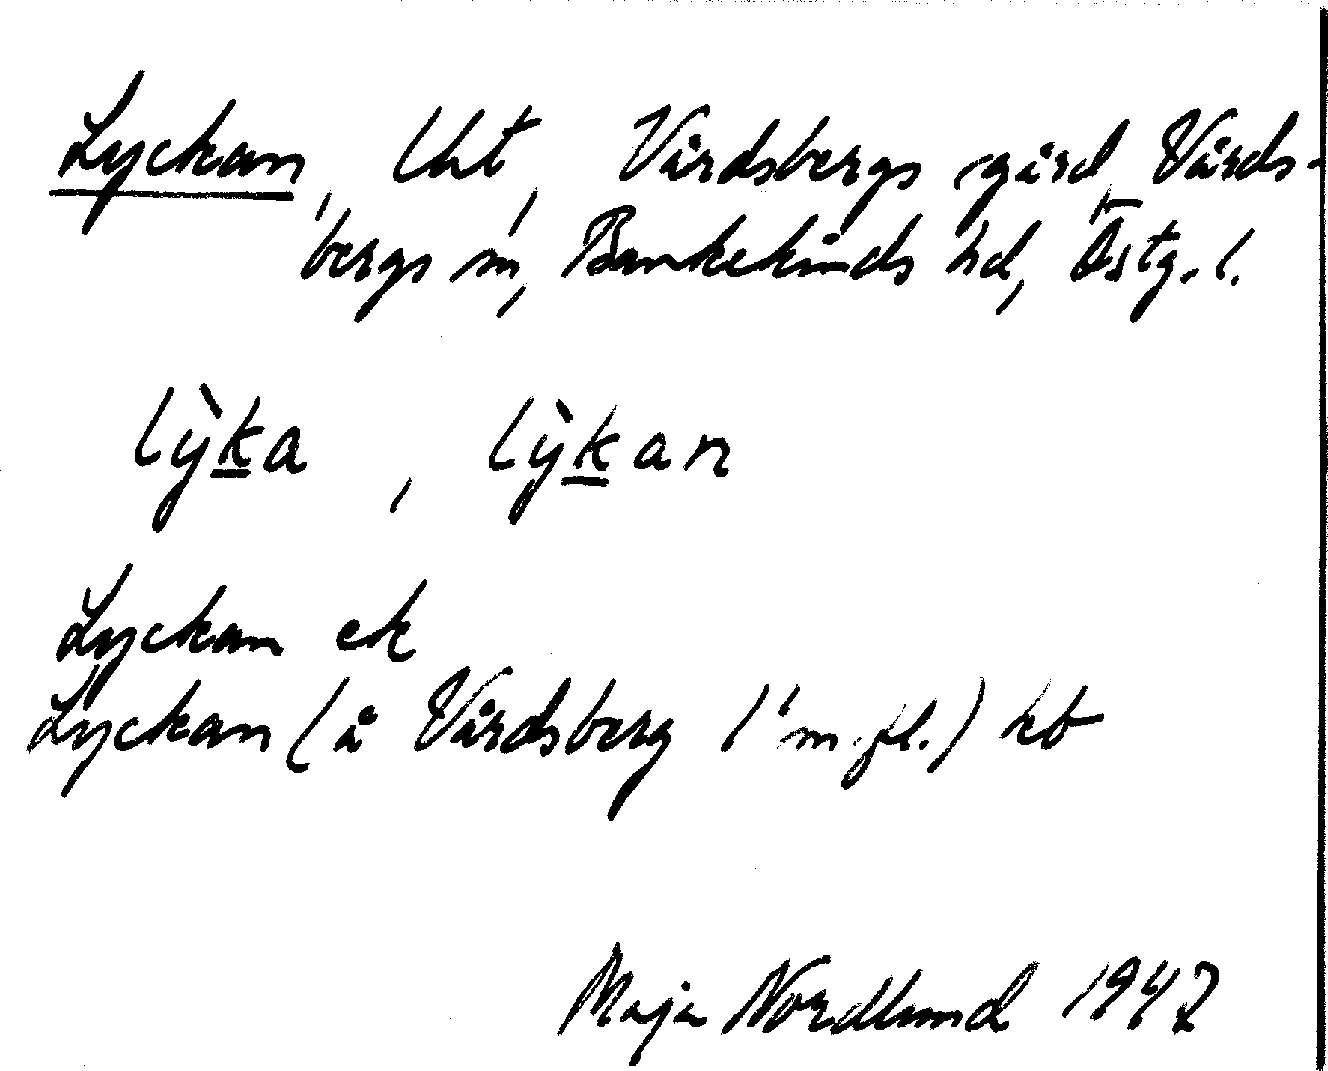 Lyckan, lht, Vårdsbergs gård, Vårds-
bergs sn, Bankekinds hd, Östg. l.
lỳka, lỳkan
Lyckan ek
Lyckan (å Vårdsberg 1' m. fl.) hb
Maja Nordlund 1947